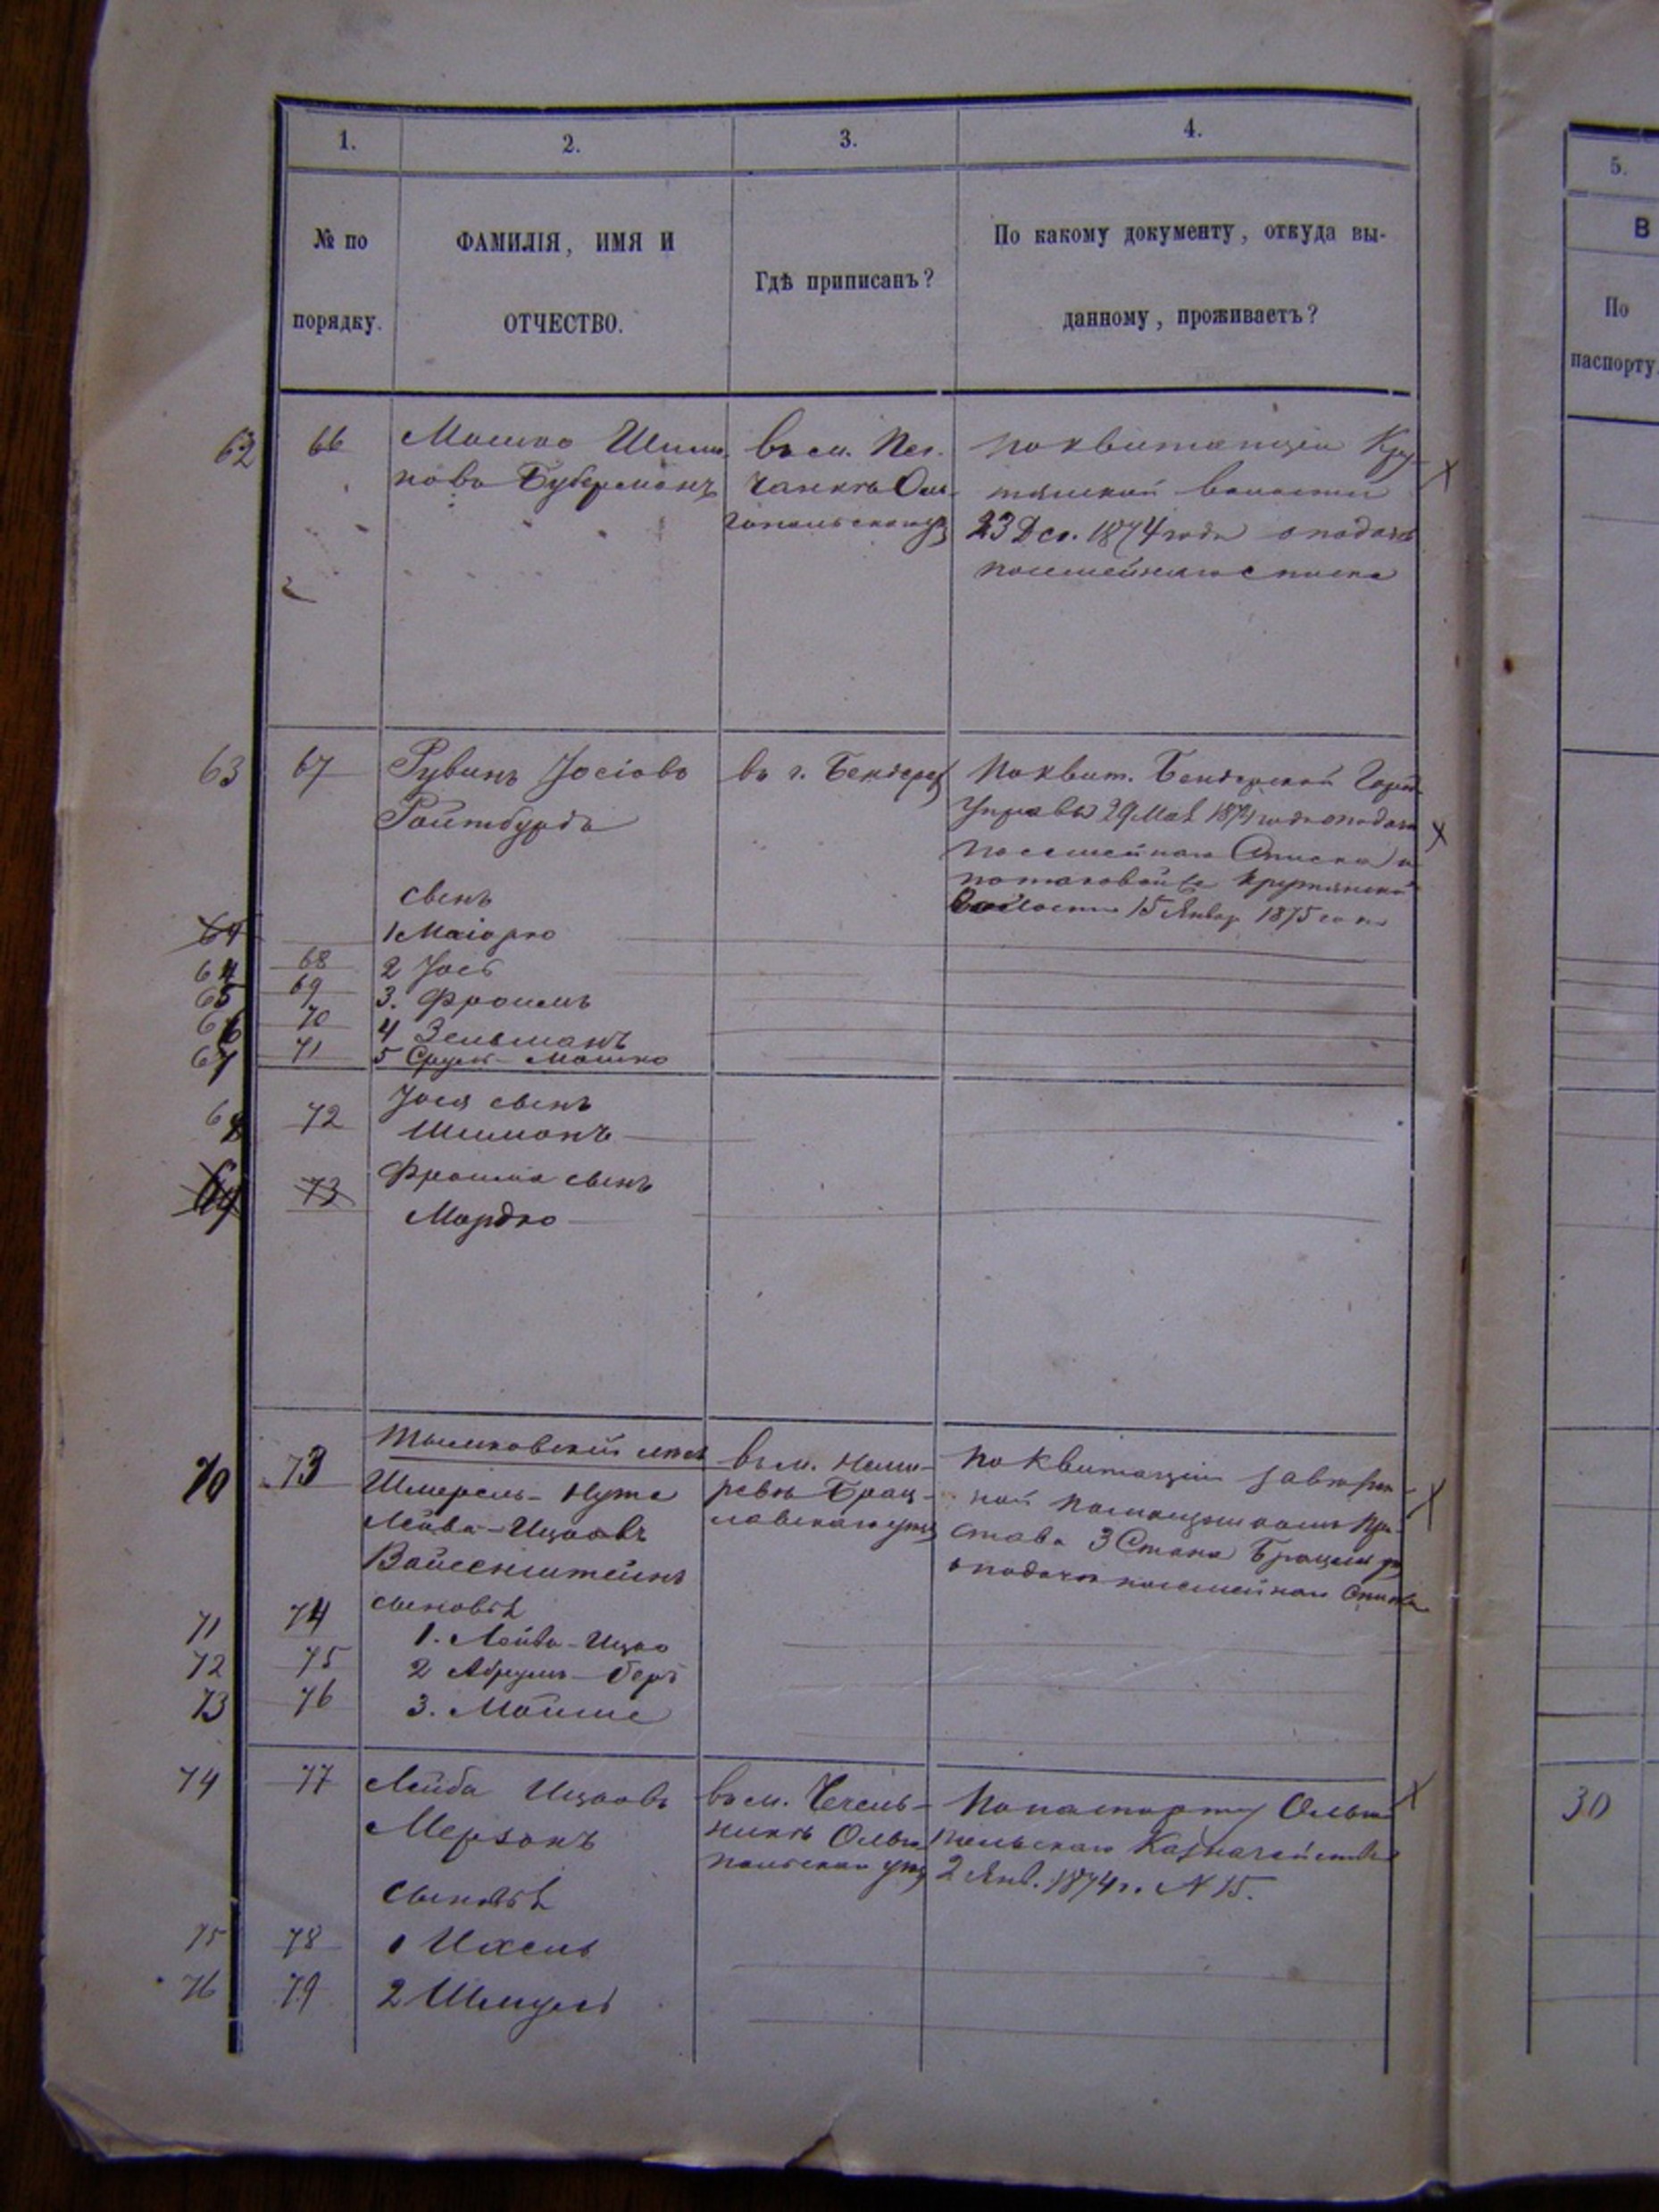 1. 2. 3. 4.
№ по порядку.
ФАМИЛІЯ, ИМЯ И
ОТЧЕСТВО.
Гдѣ приписанъ?
По какому документу, откуда вы-
данному, проживаетъ?
5.
В
По
паспорту.
62 66 Мошко Шимо
новъ Губерманъ
въ м. Пес
чанкѣ Оль
гопольскаго у
по квитанціи Кру
тянской волости
23 Дек. 1874 года о подачѣ
посемейнаго списка
63 67 Рувинъ Іосіовъ
Ройтбурдъ
въ г. Бендерахъ
по квит. Бендерской Город.
Управы 29 Мая 1874 года о подачѣ
посемейнаго Списка и
по таковой же Крутянской
Волости 15 Январ 1875 года
сынъ
64 1 Маіорко
64 68 2 Іось
65 69 3. Фроимъ
66 70 4 Зельманъ
67 71 5 Сруль-Мошко
Іося сынъ
68 72 Шимонъ
Фроима сынъ
69 73 Мордко
70 73
Шмерель-Нута
Лейба-Ицковъ
Вайсенштейнъ
въ м. Неми-
ровѣ Брац-
лавскаго уѣз
по квитанціи
става 3 Стана Брацлав у
о подачѣ посемейнаго Списка
сыновья
71 74 1. Лейба-Ицко
72 75 2 Абрумъ-Беръ
73 76 3. Мойше
74 77 Лейба Ицковъ
Мерзонъ
въ м. Чечель-
никѣ Ольго
польскаго уѣз
по паспорту Ольго
польскаго Казначейства
2 Янв. 1874 г. N 15.
30
сыновья
75 78 1 Ихель
76 79 2 Шмуль